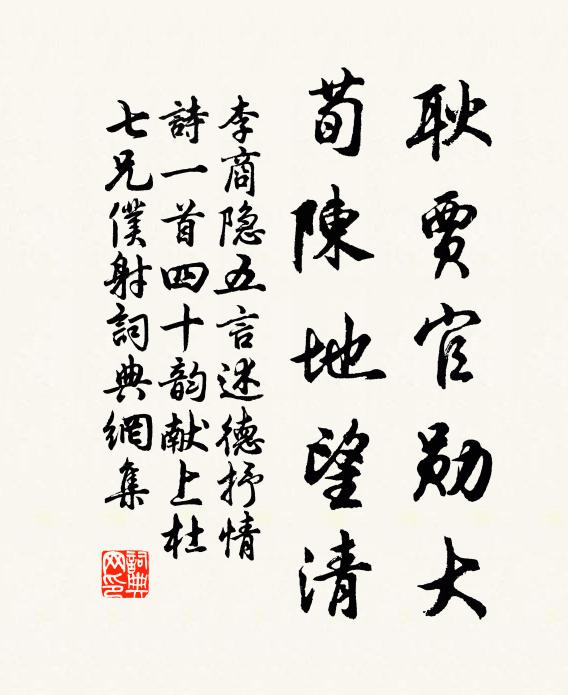 耿賈官勛大
荀陳地望清
李商隐五言述德抒情
詩一首四十韵献上杜
七兄僕射詞典網集
詞典网印